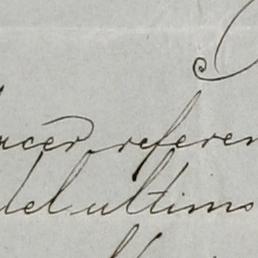 acer referen
del ultimo